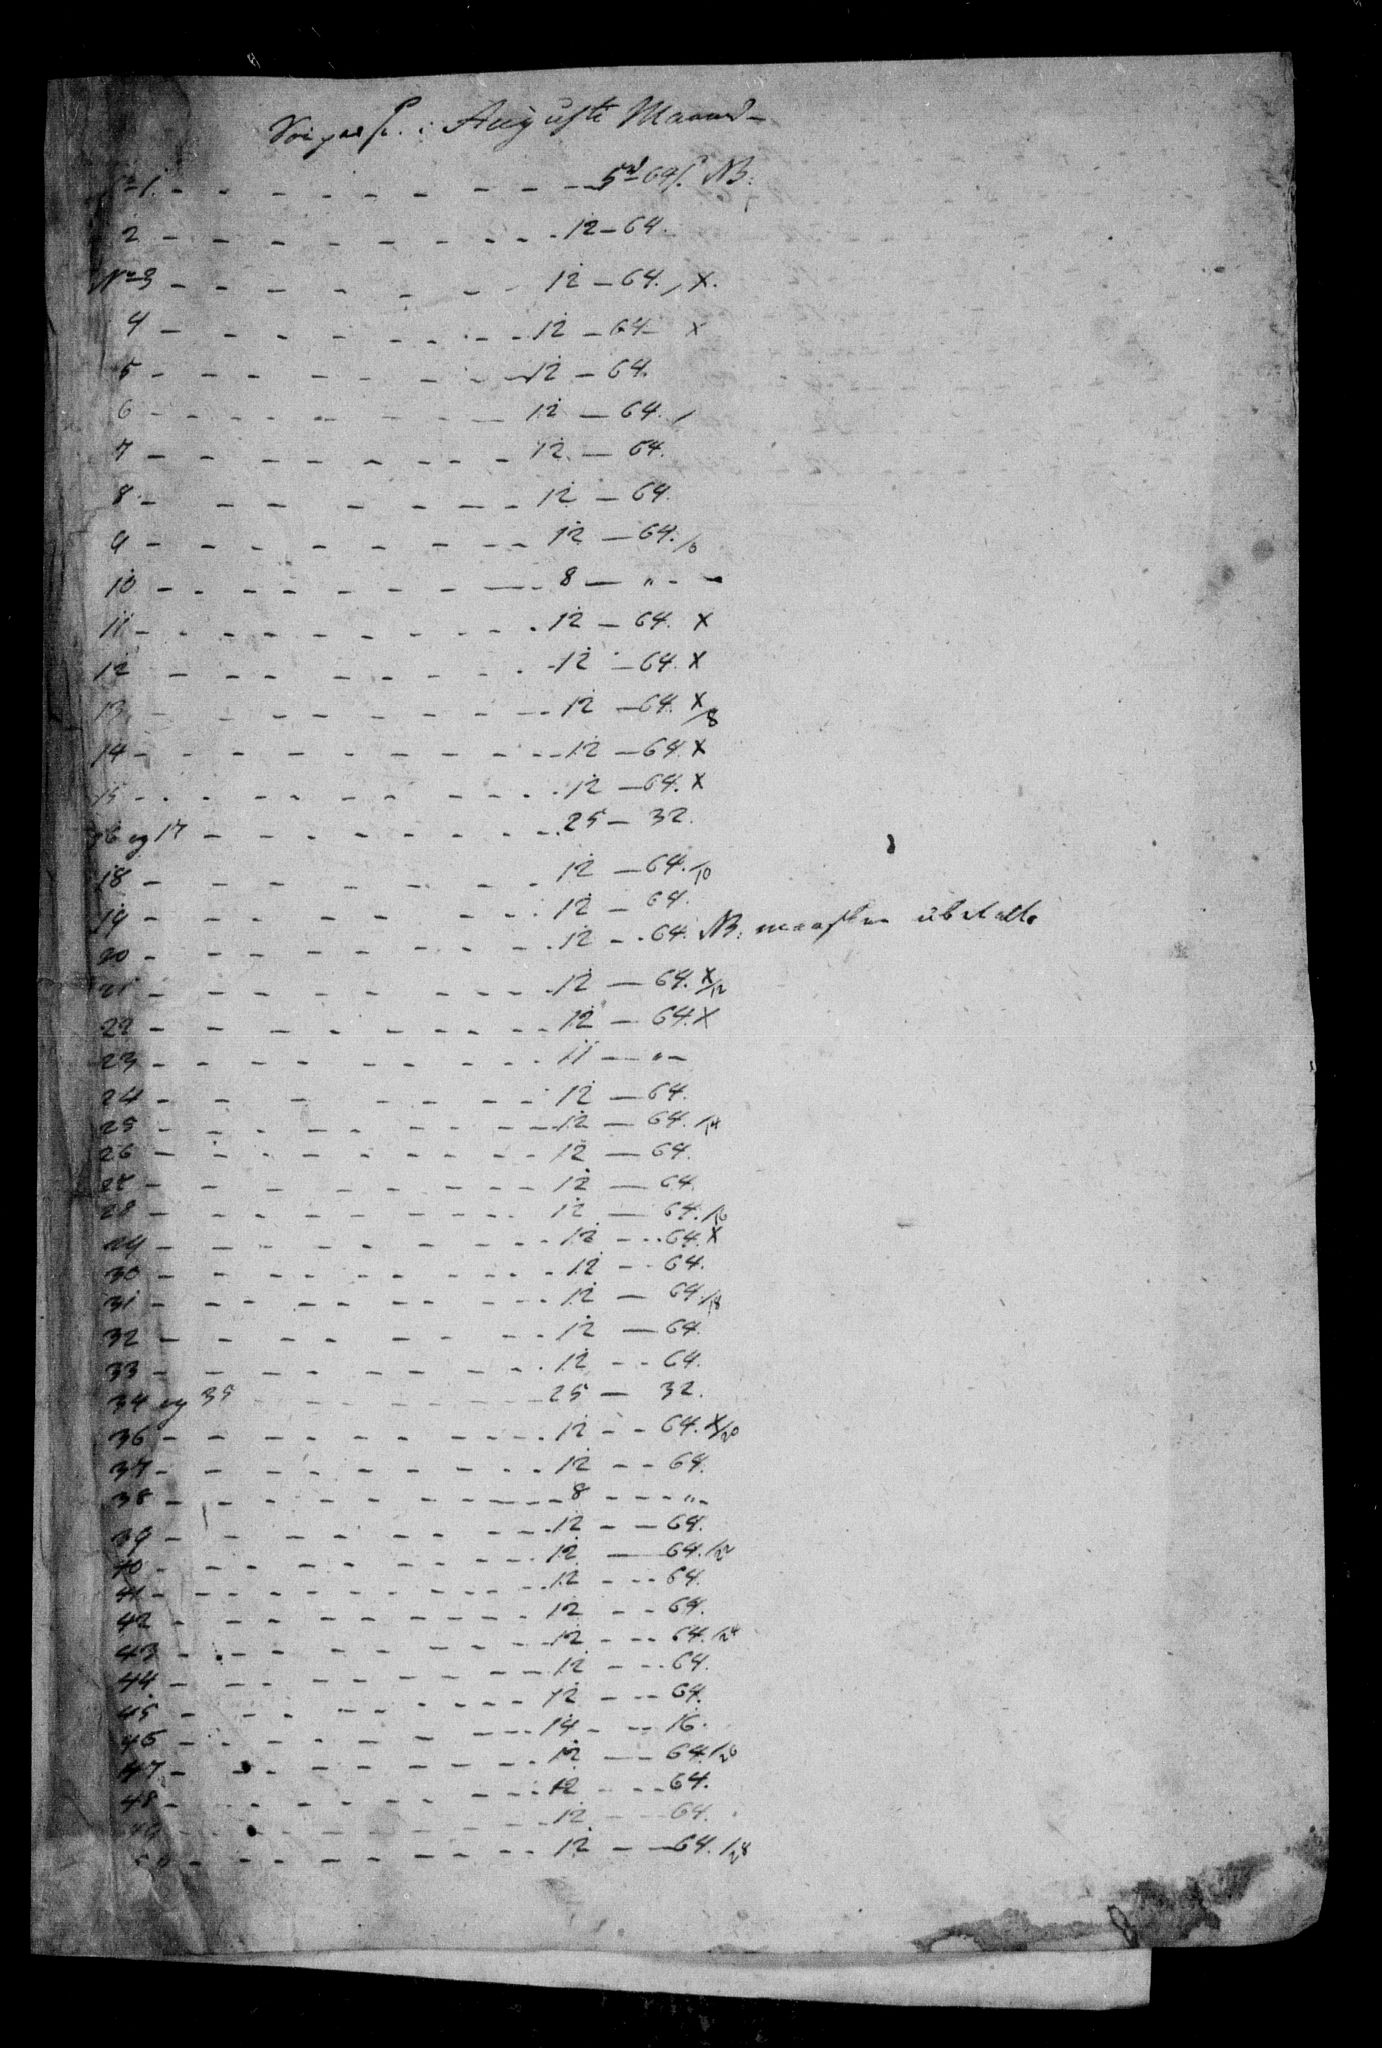 i Augusti Maaned
No 1. - - - - - - - - 5 rd 64 s. NB.
2 - - - - - - - - 12 - 64.
No 3 - - - - - - - 12 - 64. X.
4 - - - - - - - - 12 - 64 X
5 - - - - - - - - 12 - 64.
6 - - - - - - - - 12 - 64. /
7 - - - - - - - - 12 - 64.
8 - - - - - - - - 12 - 64.
9 - - - - - - - - 12 - 64. /6
10 - - - - - - - - 8 - " -
11 - - - - - - - - 12 - 64. X
12 - - - - - - - - 12 - 64. X
13 - - - - - - - - 12 - 64. X /8
14 - - - - - - - - 12 - 64 X
15 - - - - - - - - 12 - 64. X
16 og 17 - - - - - - 25 - 32.
18 - - - - - - - - 12 - 64. /10
19 - - - - - - - - 12 - 64.
20 - - - - - - - - 12 - 64. NB. maaskee ubetalt
21 - - - - - - - - 12 - 64. X /12
22 - - - - - - - - 12 - 64. X
23 - - - - - - - - 11 - " -
24 - - - - - - - - 12 - 64.
25 - - - - - - - - 12 - 64. /14
26 - - - - - - - - 12 - 64.
27 - - - - - - - - 12 - 64.
28 - - - - - - - - 12 - 64. /16
29 - - - - - - - - 12 - 64. X
30 - - - - - - - - 12 - 64.
31 - - - - - - - - 12 - 64. /18
32 - - - - - - - - 12 - 64.
33 - - - - - - - - 12 - 64.
34 og 35 - - - - - - 25 - 32.
36 - - - - - - - - 12 - 64. X /20
37 - - - - - - - - 12 - 64.
38 - - - - - - - - 8 - " -
39 - - - - - - - - 12 - 64.
40 - - - - - - - - 12 - 64. /22
41 - - - - - - - - 12 - 64.
42 - - - - - - - - 12 - 64.
43 - - - - - - - - 12 - 64. /24
44 - - - - - - - - 12 - 64.
45 - - - - - - - - 12 - 64.
46 - - - - - - - - 14 - 16.
47 - - - - - - - - 12 - 64. /26
48 - - - - - - - - 12 - 64.
49 - - - - - - - - 12 - 64.
50 - - - - - - - - 12 - 64. /28